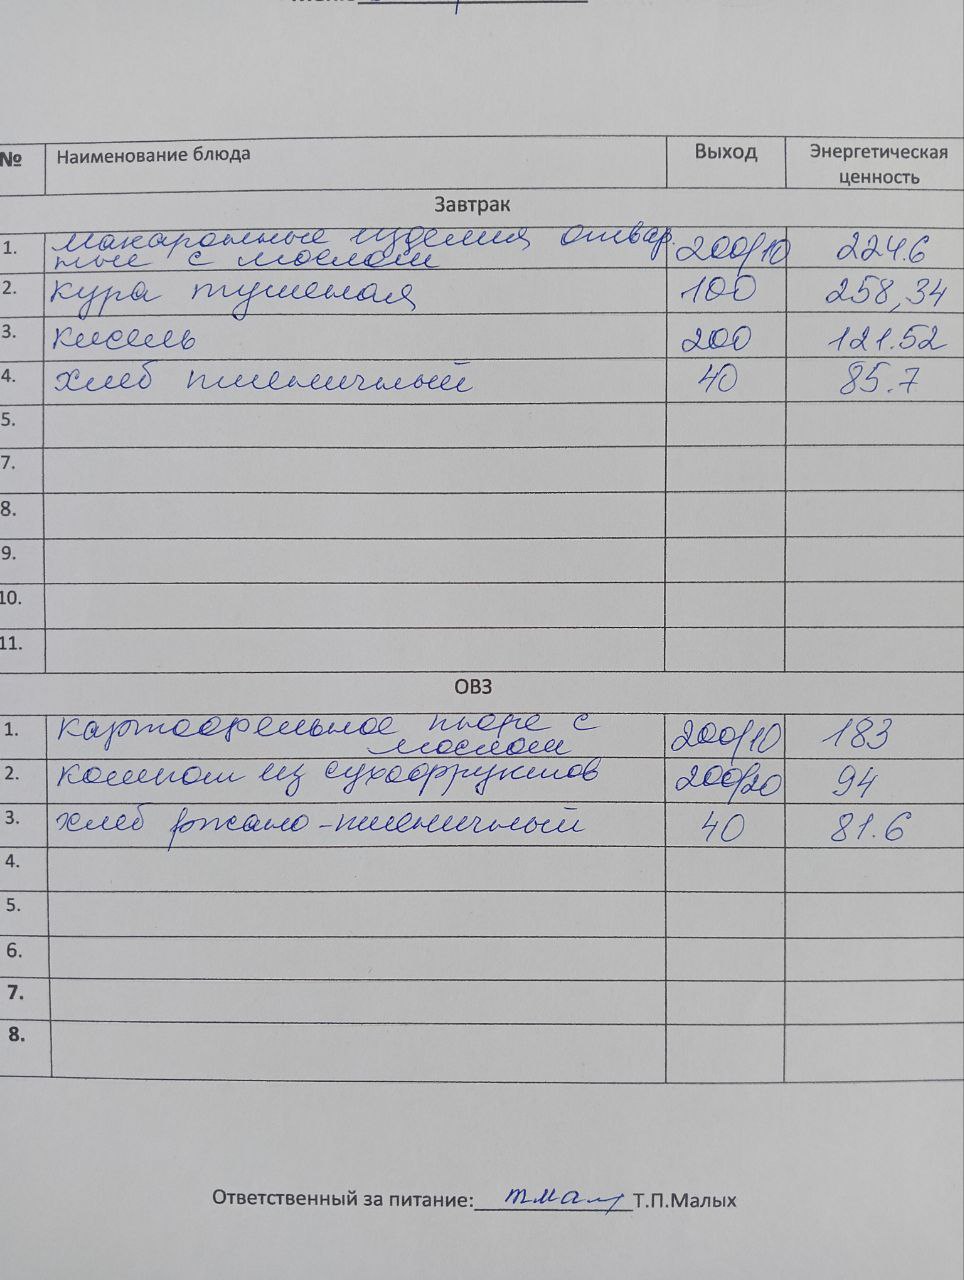 № Наименование блюда Выход Энергетическая
ценность
Завтрак
1. Макаронные изделия отвар. 200/10 224.6
ные с маслом
2. Кура тушеная 100 258,34
3. Кисель 200 121.52
4. Хлеб пшеничный 40 85.7
5.
7.
8.
9.
10.
11.
ОВЗ
1. Картофельное пюре с 200/10 183
маслом
2. Компот из сухофруктов 200/20 94
3. Хлеб ржано-пшеничный 40 81.6
4.
5.
6.
7.
8.
Ответственный за питание: Т.П.Малых